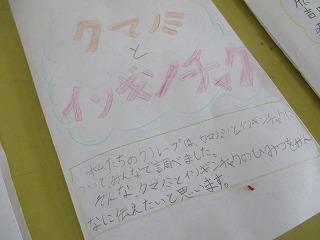 クマノミ
と
イソギンチャク
私たちのグループは、クマノミとイソギンチャクに
ついてみんなで調べました。
そんな、クマノミとイソギンチャクのひみつをみん
なに伝えたいと思います。